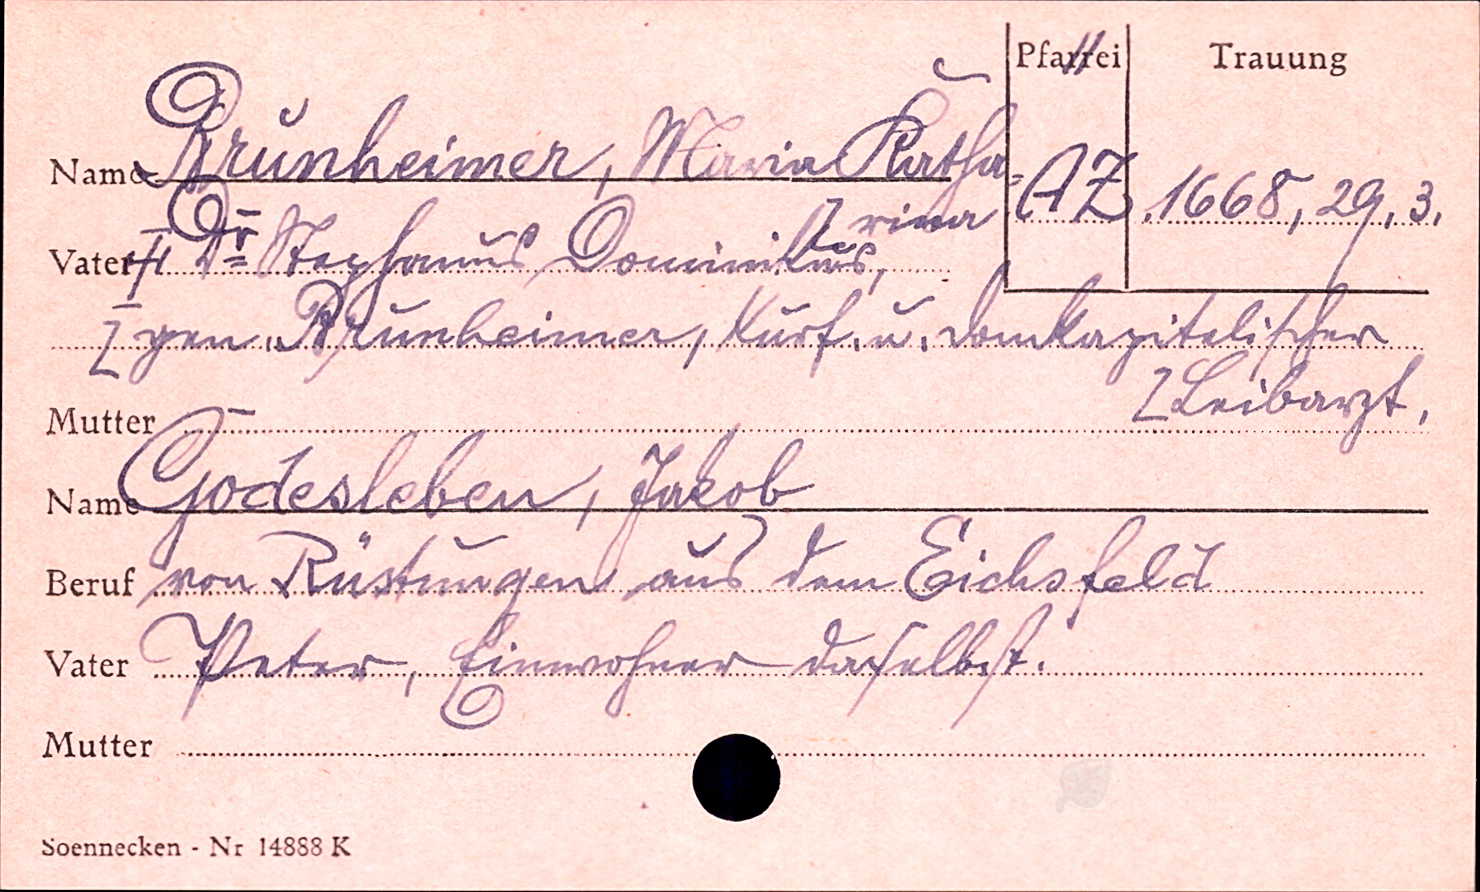 Pfarrei Trauung
Name Brunheimer, Maria Katha-
[rina AZ. 1668, 29. 3.
Vater Dr Stephanus Dominikus,
[gen. Brunheimer, kurf. u. domkapitelischer
[Leibarzt.
Mutter —
Name Godesleben, Jakob
Beruf von Rüstungen aus dem Eichsfeld
Vater Peter, Einwohner daselbst.
Mutter
Soennecken - Nr 14888 K